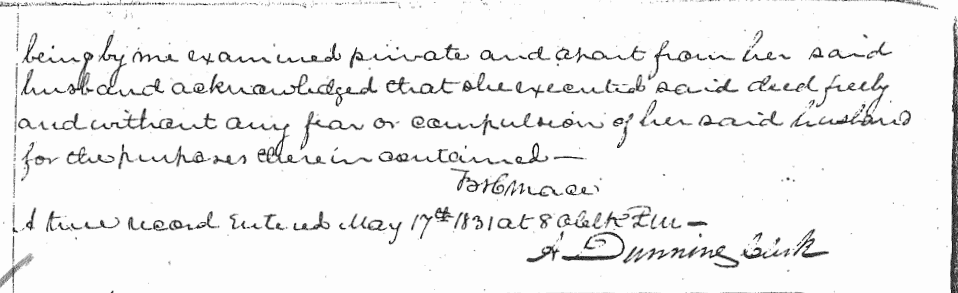 being by me examined private and apart from her said
husband acknowledged that she executed said deed freely
and without any fear or compulsion of her said husband
for the purposes therein contained —
Mace
A true record Entered May 17th 1831 at 8 oclk P.M —
A Dunning Clerk